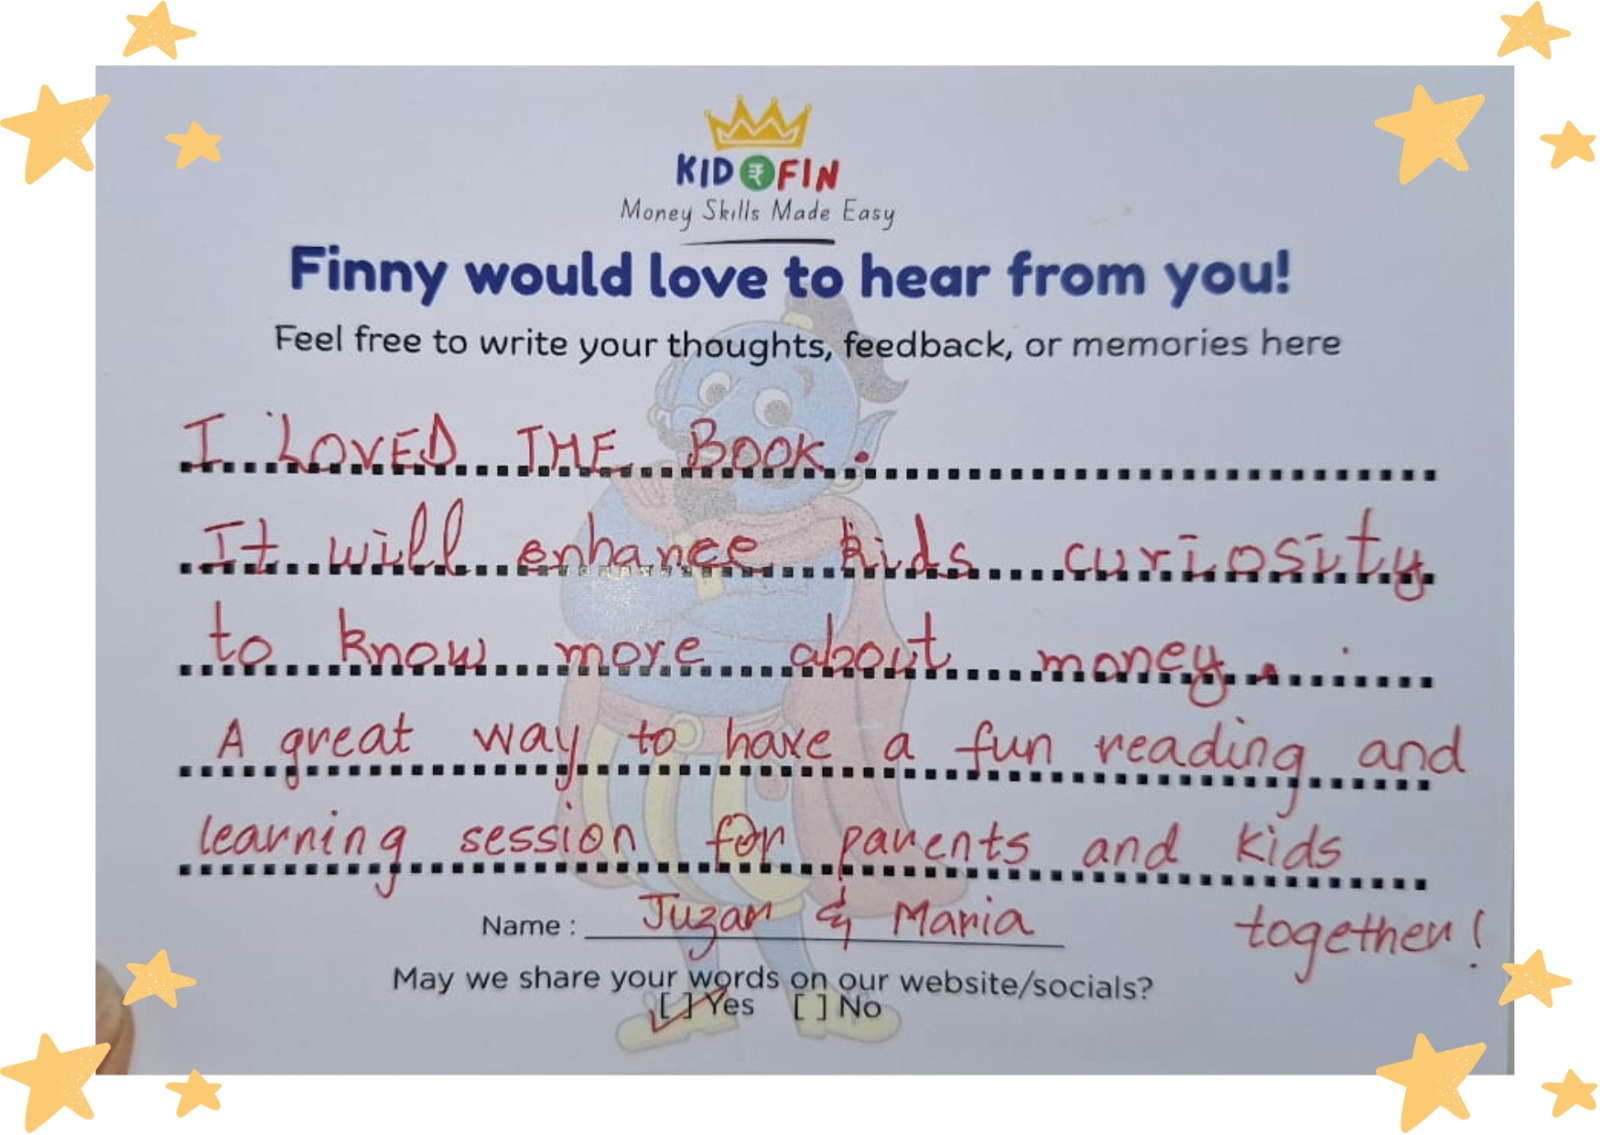 KID₹FIN
Money Skills Made Easy
Finny would love to hear from you!
Feel free to write your thoughts, feedback, or memories here
I LOVED THE BOOK.
It will enhance kids curiosity
to know more about money.
A great way to have a fun reading and
learning session for parents and kids
together!
Name : Juzar & Maria
May we share your words on our website/socials?
[ ] Yes [ ] No